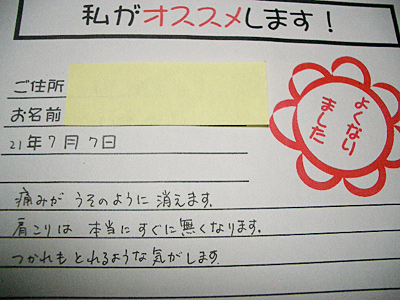 私がオススメします!
ご住所
お名前
21年7月7日
よくなり
ました
痛みが うそのように 消えます.
肩こりは 本当に すぐに 無くなります.
つかれも とれるような 気がします.